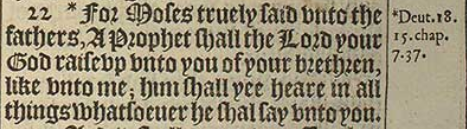 22 * For Moses truely said vnto the
fathers, A Prophet shall the Lord your
God raise vp vnto you of your brethren,
like vnto me; him shall yee heare in all
things whatsoeuer he shal say vnto you.
*Deut.18.
15. chap.
7.37.